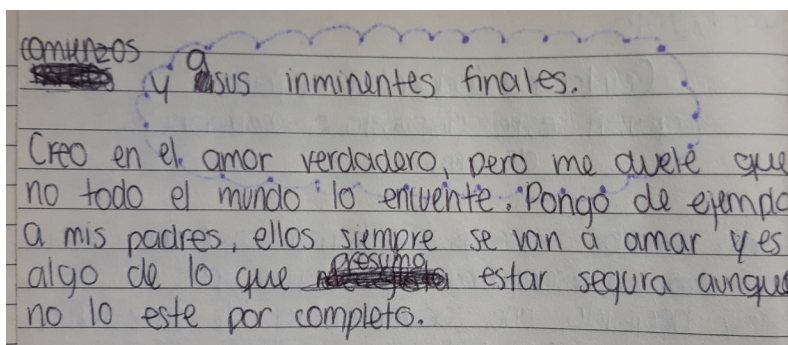 comienzos
y a sus inminentes finales.
Creo en el amor verdadero, pero me duele que
no todo el mundo lo encuente. Pongo de ejemplo
a mis padres, ellos siempre se van a amar y es
algo de lo que presumo estar segura aunque
no lo este por completo.